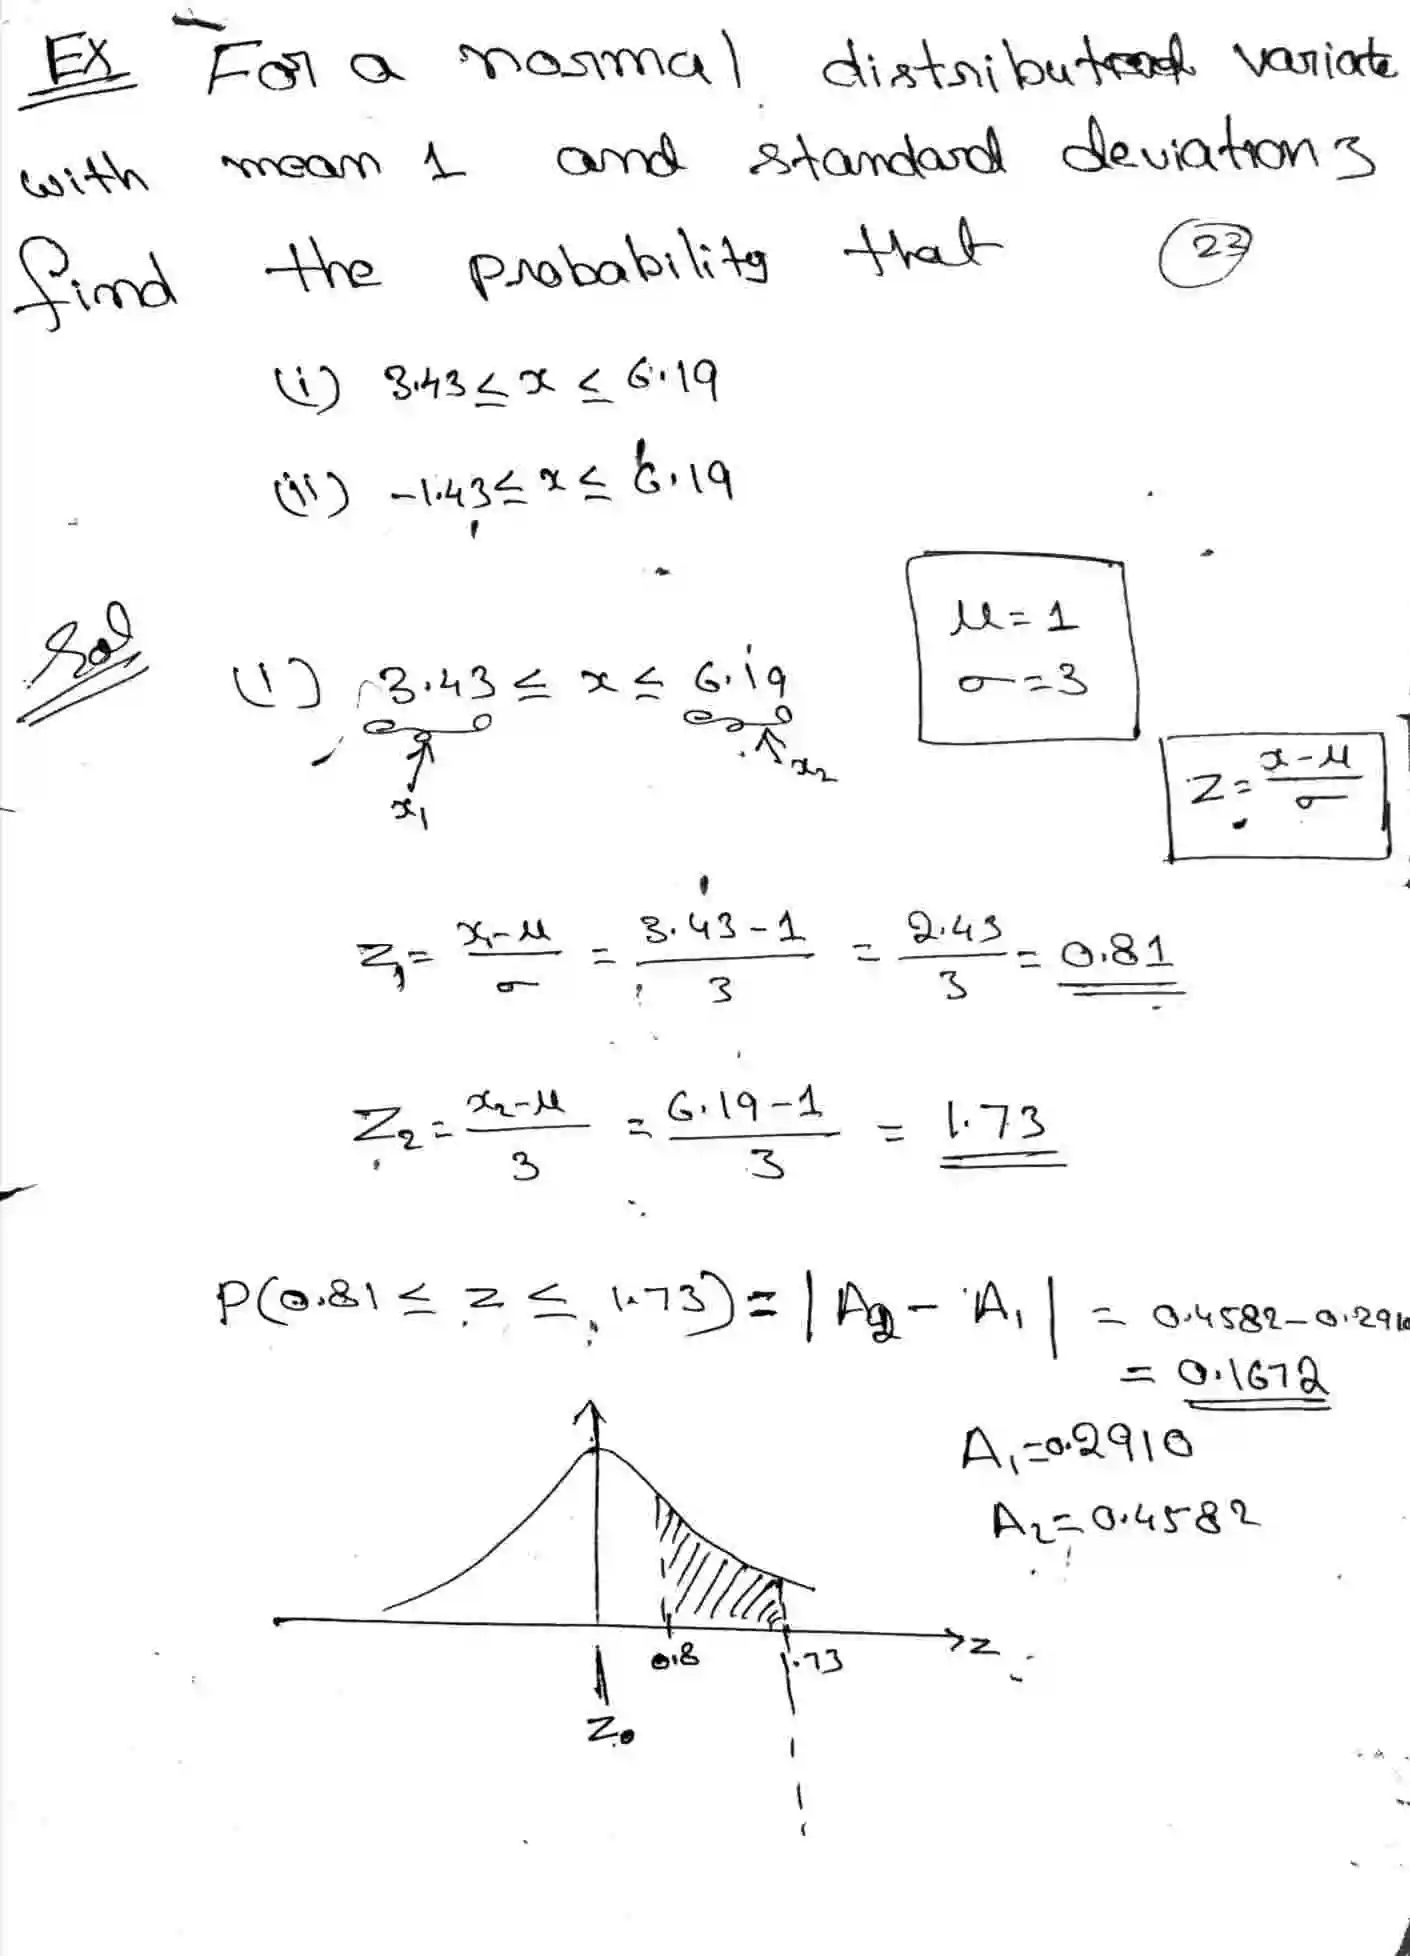 Ex For a normal distributed variate
with mean 1 and standard deviation 3
find the probability that
23
(i) 3.43 ≤ x ≤ 6.19
(ii) -1.43 ≤ x ≤ 6.19
Sol
(i) 3.43 ≤ x ≤ 6.19
x₁
x₂
μ = 1
σ = 3
Z = (x-μ)/σ
Z₁ = (x₁-μ)/σ = (3.43-1)/3 = 2.43/3 = 0.81
Z₂ = (x₂-μ)/3 = (6.19-1)/3 = 1.73
P(0.81 ≤ z ≤ 1.73) = |A₂ - A₁| = 0.4582-0.2910
= 0.1672
A₁=0.2910
A₂=0.4582
z
0.8
1.73
Z₀